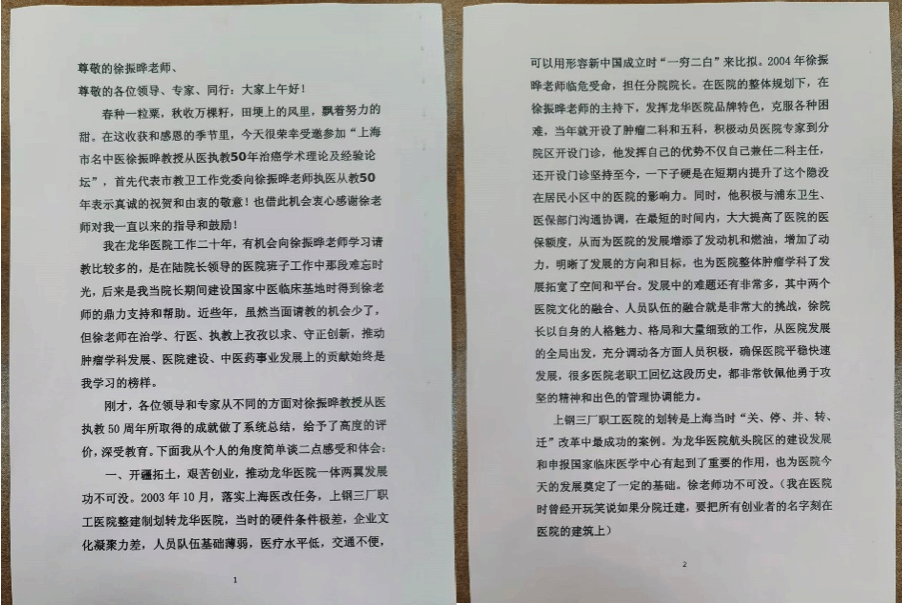 尊敬的徐振晔老师、
尊敬的各位领导、专家、同行：大家上午好！
春种一粒粟，秋收万棵籽，田埂上的风里，飘着努力的
甜。在这收获和感恩的季节里，今天很荣幸受邀参加“上海
市名中医徐振晔教授从医执教50年治癌学术理论及经验论
坛”，首先代表市教卫工作党委向徐振晔老师执医从教50
年表示真诚的祝贺和由衷的敬意！也借此机会衷心感谢徐老
师对我一直以来的指导和鼓励！
我在龙华医院工作二十年，有机会向徐振晔老师学习请
教比较多的，是在陆院长领导的医院班子工作中那段难忘时
光，后来是我当院长期间建设国家中医临床基地时得到徐老
师的鼎力支持和帮助。近些年，虽然当面请教的机会少了，
但徐老师在治学、行医、执教上孜孜以求、守正创新，推动
肿瘤学科发展、医院建设、中医药事业发展上的贡献始终是
我学习的榜样。
刚才，各位领导和专家从不同的方面对徐振晔教授从医
执教 50 周年所取得的成就做了系统总结，给予了高度的评
价，深受教育。下面我从个人的角度简单谈二点感受和体会：
一、开疆拓土，艰苦创业，推动龙华医院一体两翼发展
功不可没。2003 年 10 月，落实上海医改任务，上钢三厂职
工医院整建制划转龙华医院，当时的硬件条件极差，企业文
化凝聚力差，人员队伍基础薄弱，医疗水平低，交通不便，
1
可以用形容新中国成立时“一穷二白”来比拟。2004 年徐振
晔老师临危受命，担任分院院长。在医院的整体规划下，在
徐振晔老师的主持下，发挥龙华医院品牌特色，克服各种困
难，当年就开设了肿瘤二科和五科，积极动员医院专家到分
院区开设门诊，他发挥自己的优势不仅自己兼任二科主任，
还开设门诊坚持至今，一下子硬是在短期内提升了这个隐没
在居民小区中的医院的影响力。同时，他积极与浦东卫生、
医保部门沟通协调，在最短的时间内，大大提高了医院的医
保额度，从而为医院的发展增添了发动机和燃油，增加了动
力，明晰了发展的方向和目标，也为医院整体肿瘤学科了发
展拓宽了空间和平台。发展中的难题还有非常多，其中两个
医院文化的融合、人员队伍的融合就是非常大的挑战，徐院
长以自身的人格魅力、格局和大量细致的工作，从医院发展
的全局出发，充分调动各方面人员积极，确保医院平稳快速
发展，很多医院老职工回忆这段历史，都非常钦佩他勇于攻
坚的精神和出色的管理协调能力。
上钢三厂职工医院的划转是上海当时“关、停、并、转、
迁”改革中最成功的案例。为龙华医院航头院区的建设发展
和申报国家临床医学中心有起到了重要的作用，也为医院今
天的发展奠定了一定的基础。徐老师功不可没。（我在医院
时曾经开玩笑说如果分院迁建，要把所有创业者的名字刻在
医院的建筑上）
2